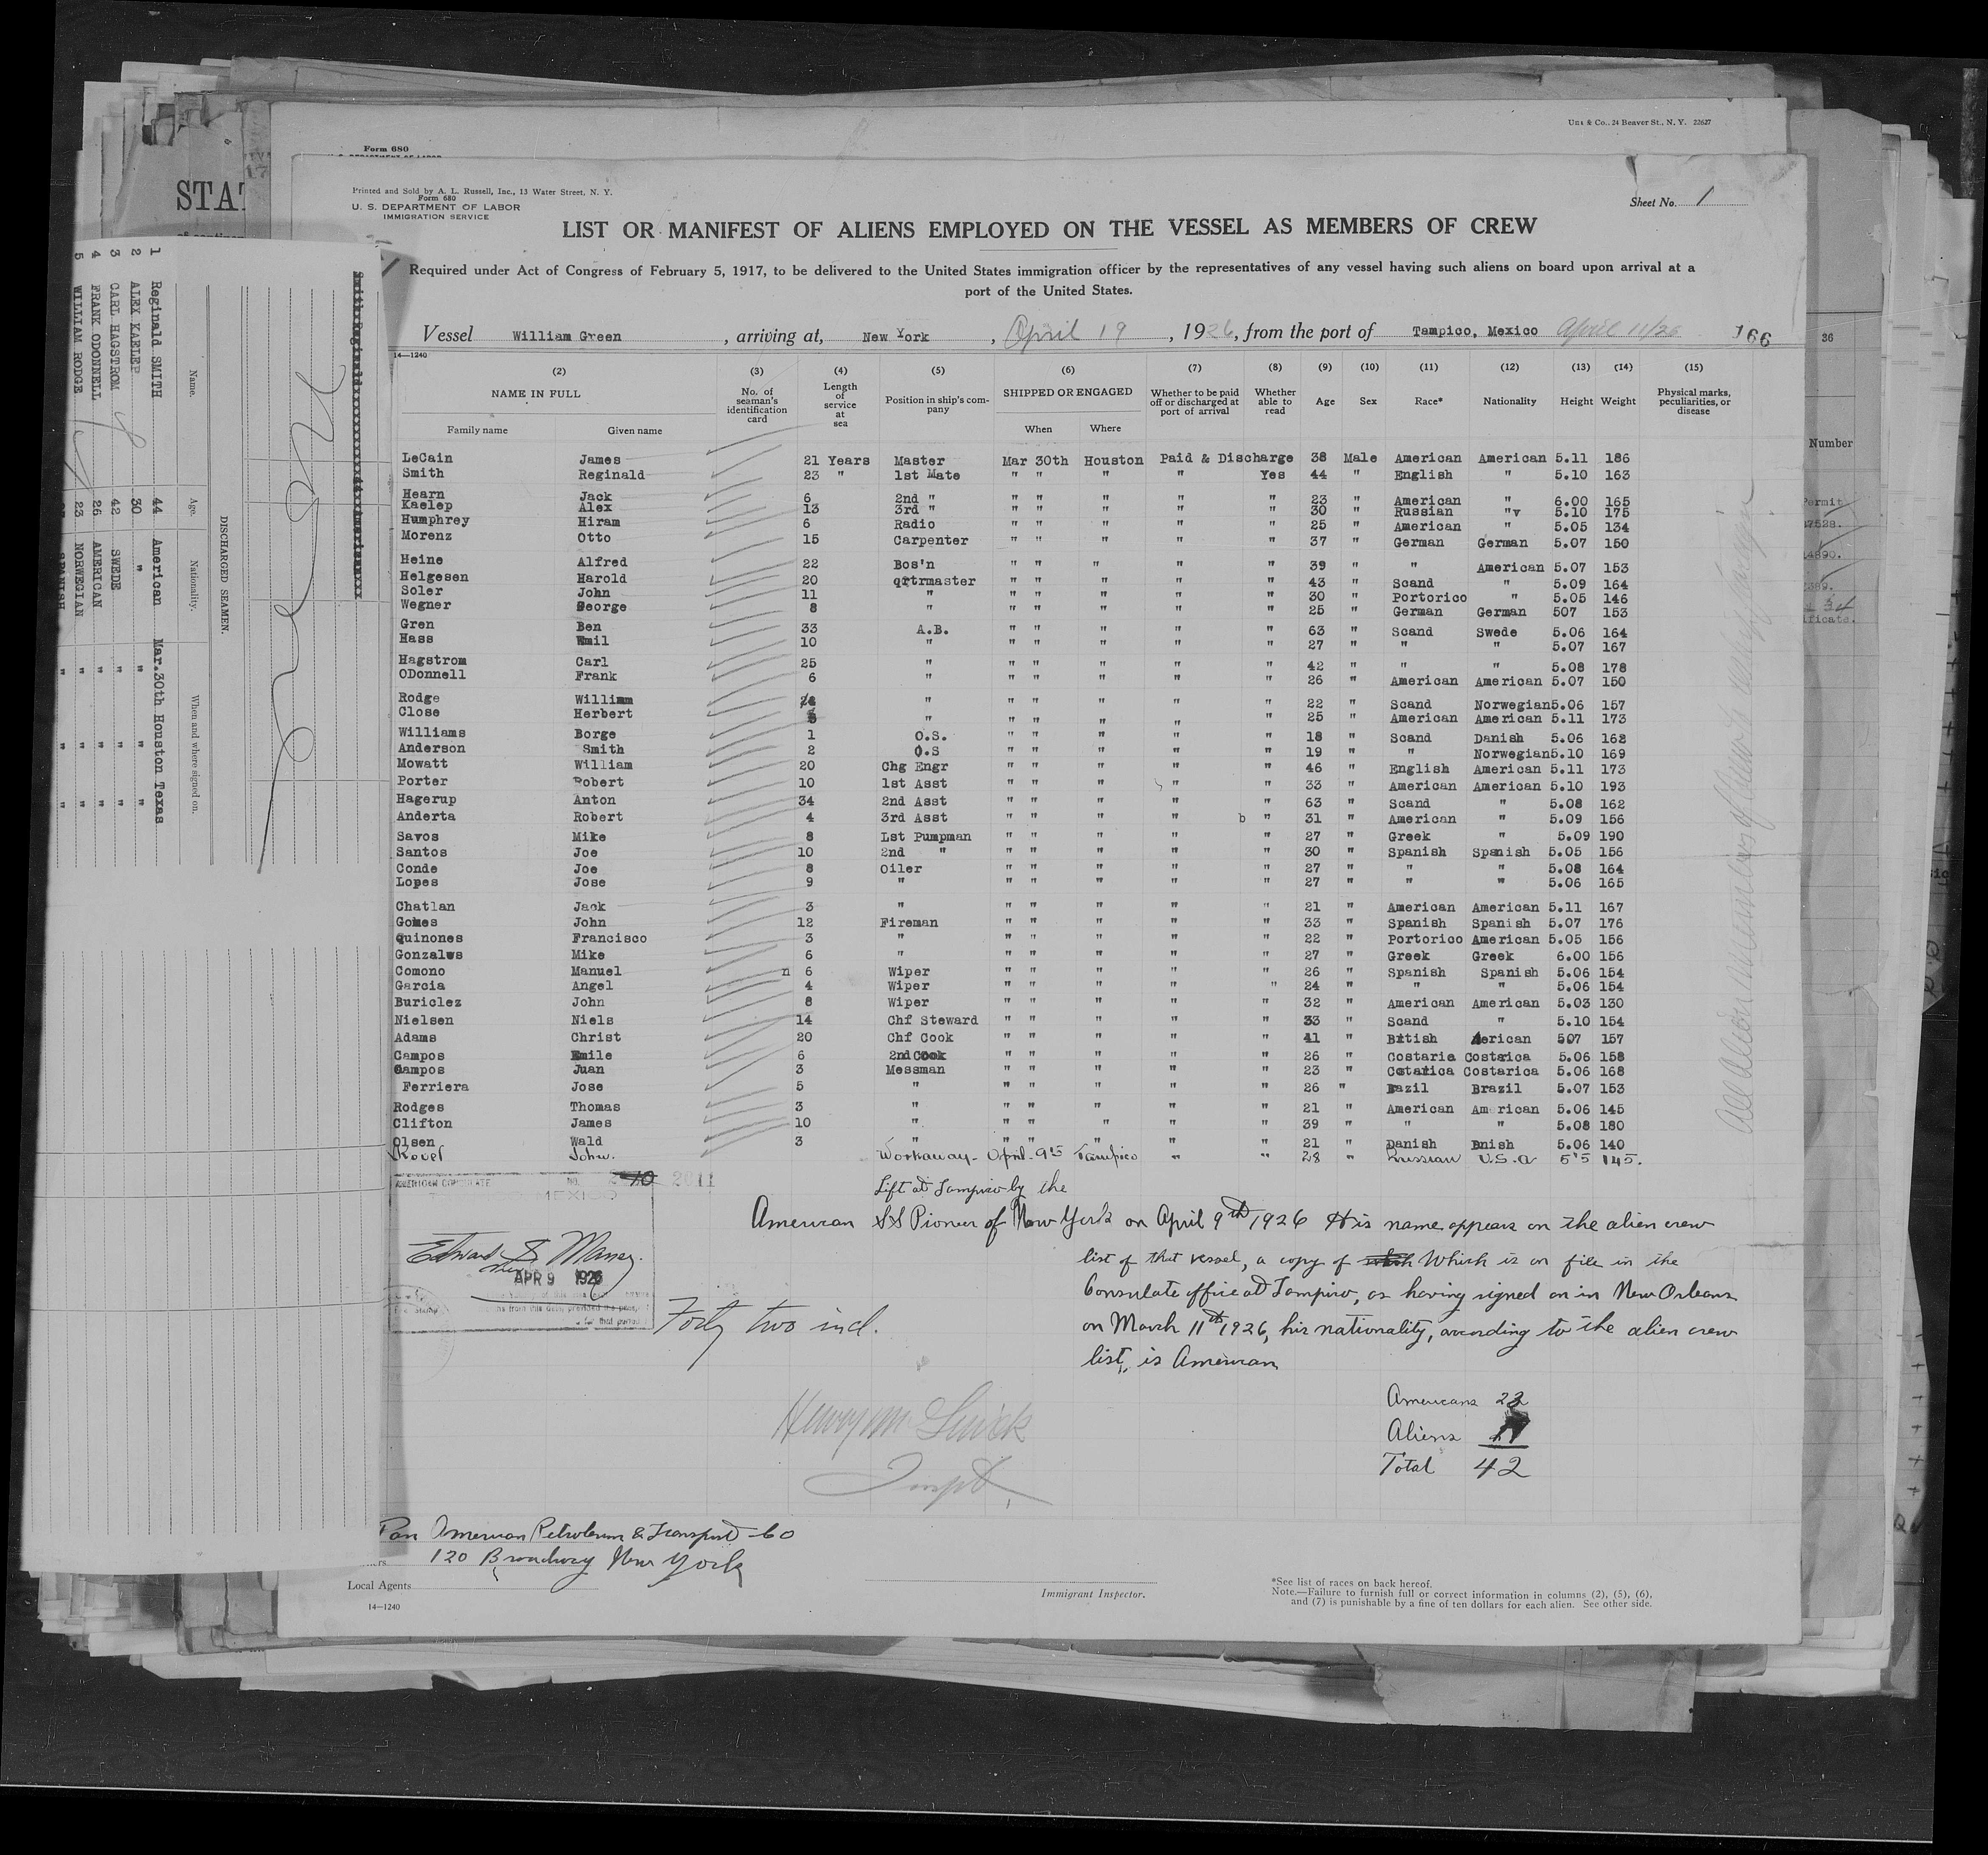 Form 680
Uns & Co., 24 Beaver St., N. Y. 22627
Printed and Sold by A. L. Russell, Inc., 13 Water Street, N. Y.
Form 680
U. S. DEPARTMENT OF LABOR
IMMIGRATION SERVICE
Sheet No. 1
LIST OR MANIFEST OF ALIENS EMPLOYED ON THE VESSEL AS MEMBERS OF CREW
Required under Act of Congress of February 5, 1917, to be delivered to the United States immigration officer by the representatives of any vessel having such aliens on board upon arrival at a
port of the United States.
Vessel William Green, arriving at, New York, April 19, 1926, from the port of Tampico, Mexico April 11/26 166
14—1240
(2) (3) (4) (5) (6) (7) (8) (9) (10) (11) (12) (13) (14) (15)
NAME IN FULL No. of seaman's identification card Length of service at sea Position in ship's company SHIPPED OR ENGAGED Whether to be paid off or discharged at port of arrival Whether able to read Age Sex Race* Nationality Height Weight Physical marks, peculiarities, or disease
Family name Given name When Where
LeCain James 21 Years Master Mar 30th Houston Paid & Discharge 38 Male American American 5.11 186
Smith Reginald 23 " 1st Mate " " " " Yes 44 " English " 5.10 163
Hearn Jack 6 2nd " " " " " " 23 " American " 6.00 165
Kaelep Alex 13 3rd " " " " " " 30 " Russian "v 5.10 175
Humphrey Hiram 6 Radio " " " " " 25 " American " 5.05 134
Morenz Otto 15 Carpenter " " " " " 37 " German German 5.07 150
Heine Alfred 22 Bos'n " " " " " 39 " " American 5.07 153
Helgesen Harold 20 qrtrmaster " " " " " 43 " Scand " 5.09 164
Soler John 11 " " " " " " 30 " Portorico " 5.05 146
Wegner George 8 " " " " " " 25 " German German 507 153
Gren Ben 33 A.B. " " " " " 63 " Scand Swede 5.06 164
Hass Emil 10 " " " " " " 27 " " " 5.07 167
Hagstrom Carl 25 " " " " " " 42 " " " 5.08 178
ODonnell Frank 6 " " " " " " 26 " American American 5.07 150
Rodge William " " " " " " 22 " Scand Norwegian 5.06 157
Close Herbert " " " " " " 25 " American American 5.11 173
Williams Borge 1 O.S. " " " " " 18 " Scand Danish 5.06 162
Anderson Smith 2 O.S " " " " " 19 " " Norwegian 5.10 169
Mowatt William 20 Chg Engr " " " " " 46 " English American 5.11 173
Porter Robert 10 1st Asst " " " " " 33 " American American 5.10 193
Hagerup Anton 34 2nd Asst " " " " " 63 " Scand " 5.08 162
Anderta Robert 4 3rd Asst " " " " b " 31 " American " 5.09 156
Savos Mike 8 Lst Pumpman " " " " " 27 " Greek " 5.09 190
Santos Joe 10 2nd " " " " " " 30 " Spanish Spanish 5.05 156
Conde Joe 8 Oiler " " " " " 27 " " " 5.08 164
Lopes Jose 9 " " " " " " 27 " " " 5.06 165
Chatlan Jack 3 " " " " " " 21 " American American 5.11 167
Gomes John 12 Fireman " " " " " 33 " Spanish Spanish 5.07 176
quinones Francisco 3 " " " " " " 22 " Portorico American 5.05 156
Gonzales Mike 6 " " " " " " 27 " Greek Greek 6.00 156
Comono Manuel n 6 Wiper " " " " " 26 " Spanish Spanish 5.06 154
Garcia Angel 4 Wiper " " " " " 24 " " " 5.06 154
Buriclez John 8 Wiper " " " " " 32 " American American 5.03 130
Nielsen Niels 14 Chf Steward " " " " " 33 " Scand " 5.10 154
Adams Christ 20 Chf Cook " " " " " 41 " Bitish Aerican 507 157
Campos Emile 6 2nd Cook " " " " " 26 " Costaria Costarica 5.06 158
Campos Juan 3 Messman " " " " " 23 " Cotarica Costarica 5.06 168
Ferriera Jose 5 " " " " " " 26 " Bazil Brazil 5.07 153
Rodges Thomas 3 " " " " " " 21 " American American 5.06 145
Clifton James 10 " " " " " " 39 " " " 5.08 180
Olsen Wald 3 " " " " " " 21 " Danish Dnish 5.06 140
Kovel John. Workaway - April - 9th Tampico " " 28 " Russian U.S.a 5'5 145.
AMERICAN CONSULATE NO. 2011
MEXICO
Edward S. Maney.
APR 9 1926
Forty two incl.
Left at Tampico by the
American SS Pioneer of New York on April 9th 1926 His name appears on the alien crew
list of that vessel, a copy of which Which is on file in the
Consulate office at Tampico, as having signed on in New Orleans
on March 11th 1926, his nationality, according to the alien crew
list, is American
Americans 23
Aliens
Total 42
Inspt.
Pan American Petroleum & Transport Co
120 Broadway New York
Local Agents
14—1240
Immigrant Inspector.
*See list of races on back hereof.
Note.—Failure to furnish full or correct information in columns (2), (5), (6),
and (7) is punishable by a fine of ten dollars for each alien. See other side.
DISCHARGED SEAMEN.
Name. Age. Nationality. When and where signed on.
1 Reginald SMITH 44 American Mar.30th Houston Texas
2 ALEX KAELEP 30 " " " "
3 CARL HAGSTROM 42 SWEDE " " "
4 FRANK ODONNELL 26 AMERICAN " " "
5 WILLIAM RODGE 23 NORWEGIAN " " "
SPANISH
STAT
36
Number